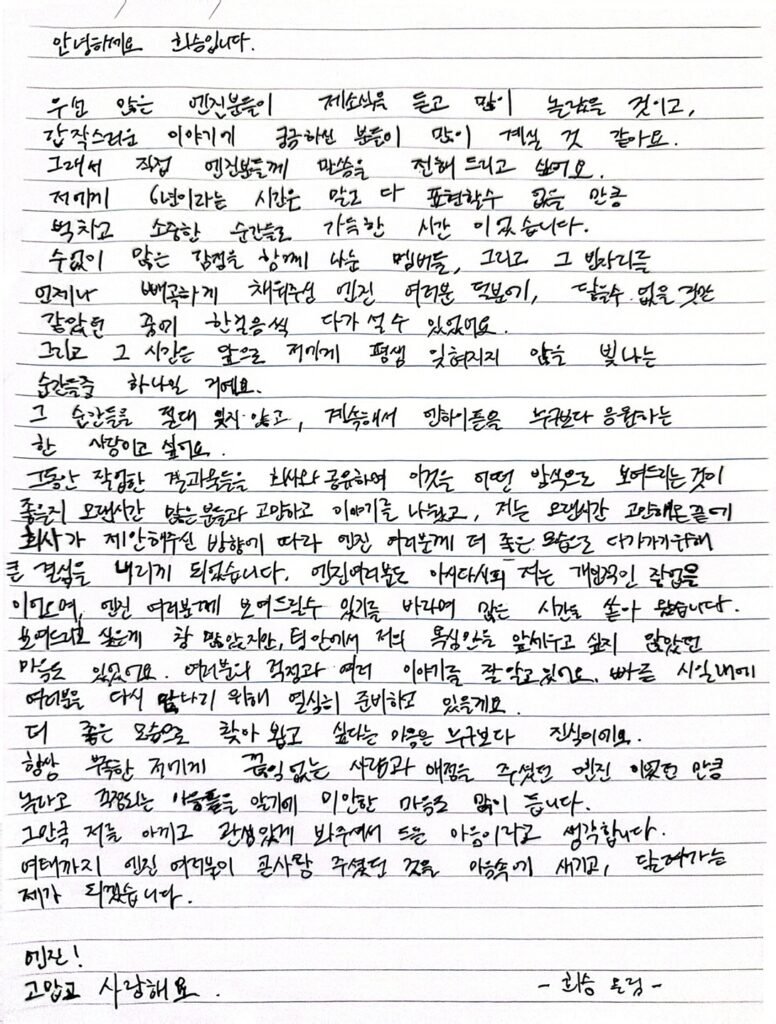 안녕하세요 희승입니다.
우선 많은 엔진분들이 제소식을 듣고 많이 놀랐을 것이고,
갑작스러운 이야기에 궁금하신 분들이 많이 계실 것 같아요.
그래서 직접 엔진분들께 말씀을 전해 드리고 싶어요.
저에게 6년이라는 시간은 말로 다 표현할수 없을 만큼
벅차고 소중한 순간들로 가득한 시간 이었습니다.
수없이 많은 감정을 함께 나눈 멤버들, 그리고 그 빈자리를
언제나 빼곡하게 채워주신 엔진 여러분 덕분에, 닿을수 없을 것만
같았던 꿈에 한걸음씩 다가 설 수 있었어요.
그리고 그 시간은 앞으로 저에게 평생 잊혀지지 않을 빛나는
순간들중 하나일 거에요.
그 순간들을 절대 잊지 않고, 계속해서 엔하이픈을 누구보다 응원하는
한 사람이고 싶어요.
그동안 작업한 결과물들을 회사와 공유하며 이것을 어떤 방식으로 보여드리는 것이
좋을지 오랜시간 많은 분들과 고민하고 이야기를 나눴고, 저는 오랜시간 고민해온 끝에
회사가 제안해주신 방향에 따라 엔진 여러분께 더 좋은 모습으로 다가가기위해
큰 결심을 내리게 되었습니다. 엔진여러분도 아시다시피 저는 개인적인 작업을
이어오며, 엔진 여러분께 보여드릴수 있기를 바라며 많은 시간을 쏟아 왔습니다.
보여드리고 싶은게 참 많았지만, 팀 안에서 저의 욕심만을 앞세우고 싶지 않았던
마음도 있었어요. 여러분의 걱정과 여러 이야기를 잘 알고 있어요. 빠른 시일내에
여러분을 다시 만나기 위해 열심히 준비하고 있을게요.
더 좋은 모습으로 찾아 뵙고 싶다는 마음은 누구보다 진심이에요.
항상 부족한 저에게 끊임없는 사랑과 애정을 주셨던 엔진 이었던 만큼
놀라고 걱정되는 마음들을 알기에 미안한 마음도 많이 듭니다.
그만큼 저를 아끼고 관심있게 봐주셔서 드는 마음이라고 생각합니다.
여태까지 엔진 여러분이 큰사랑 주셨던 것을 마음속에 새기고, 달려가는
제가 되겠습니다.
엔진!
고맙고 사랑해요.
- 희승 드림 -